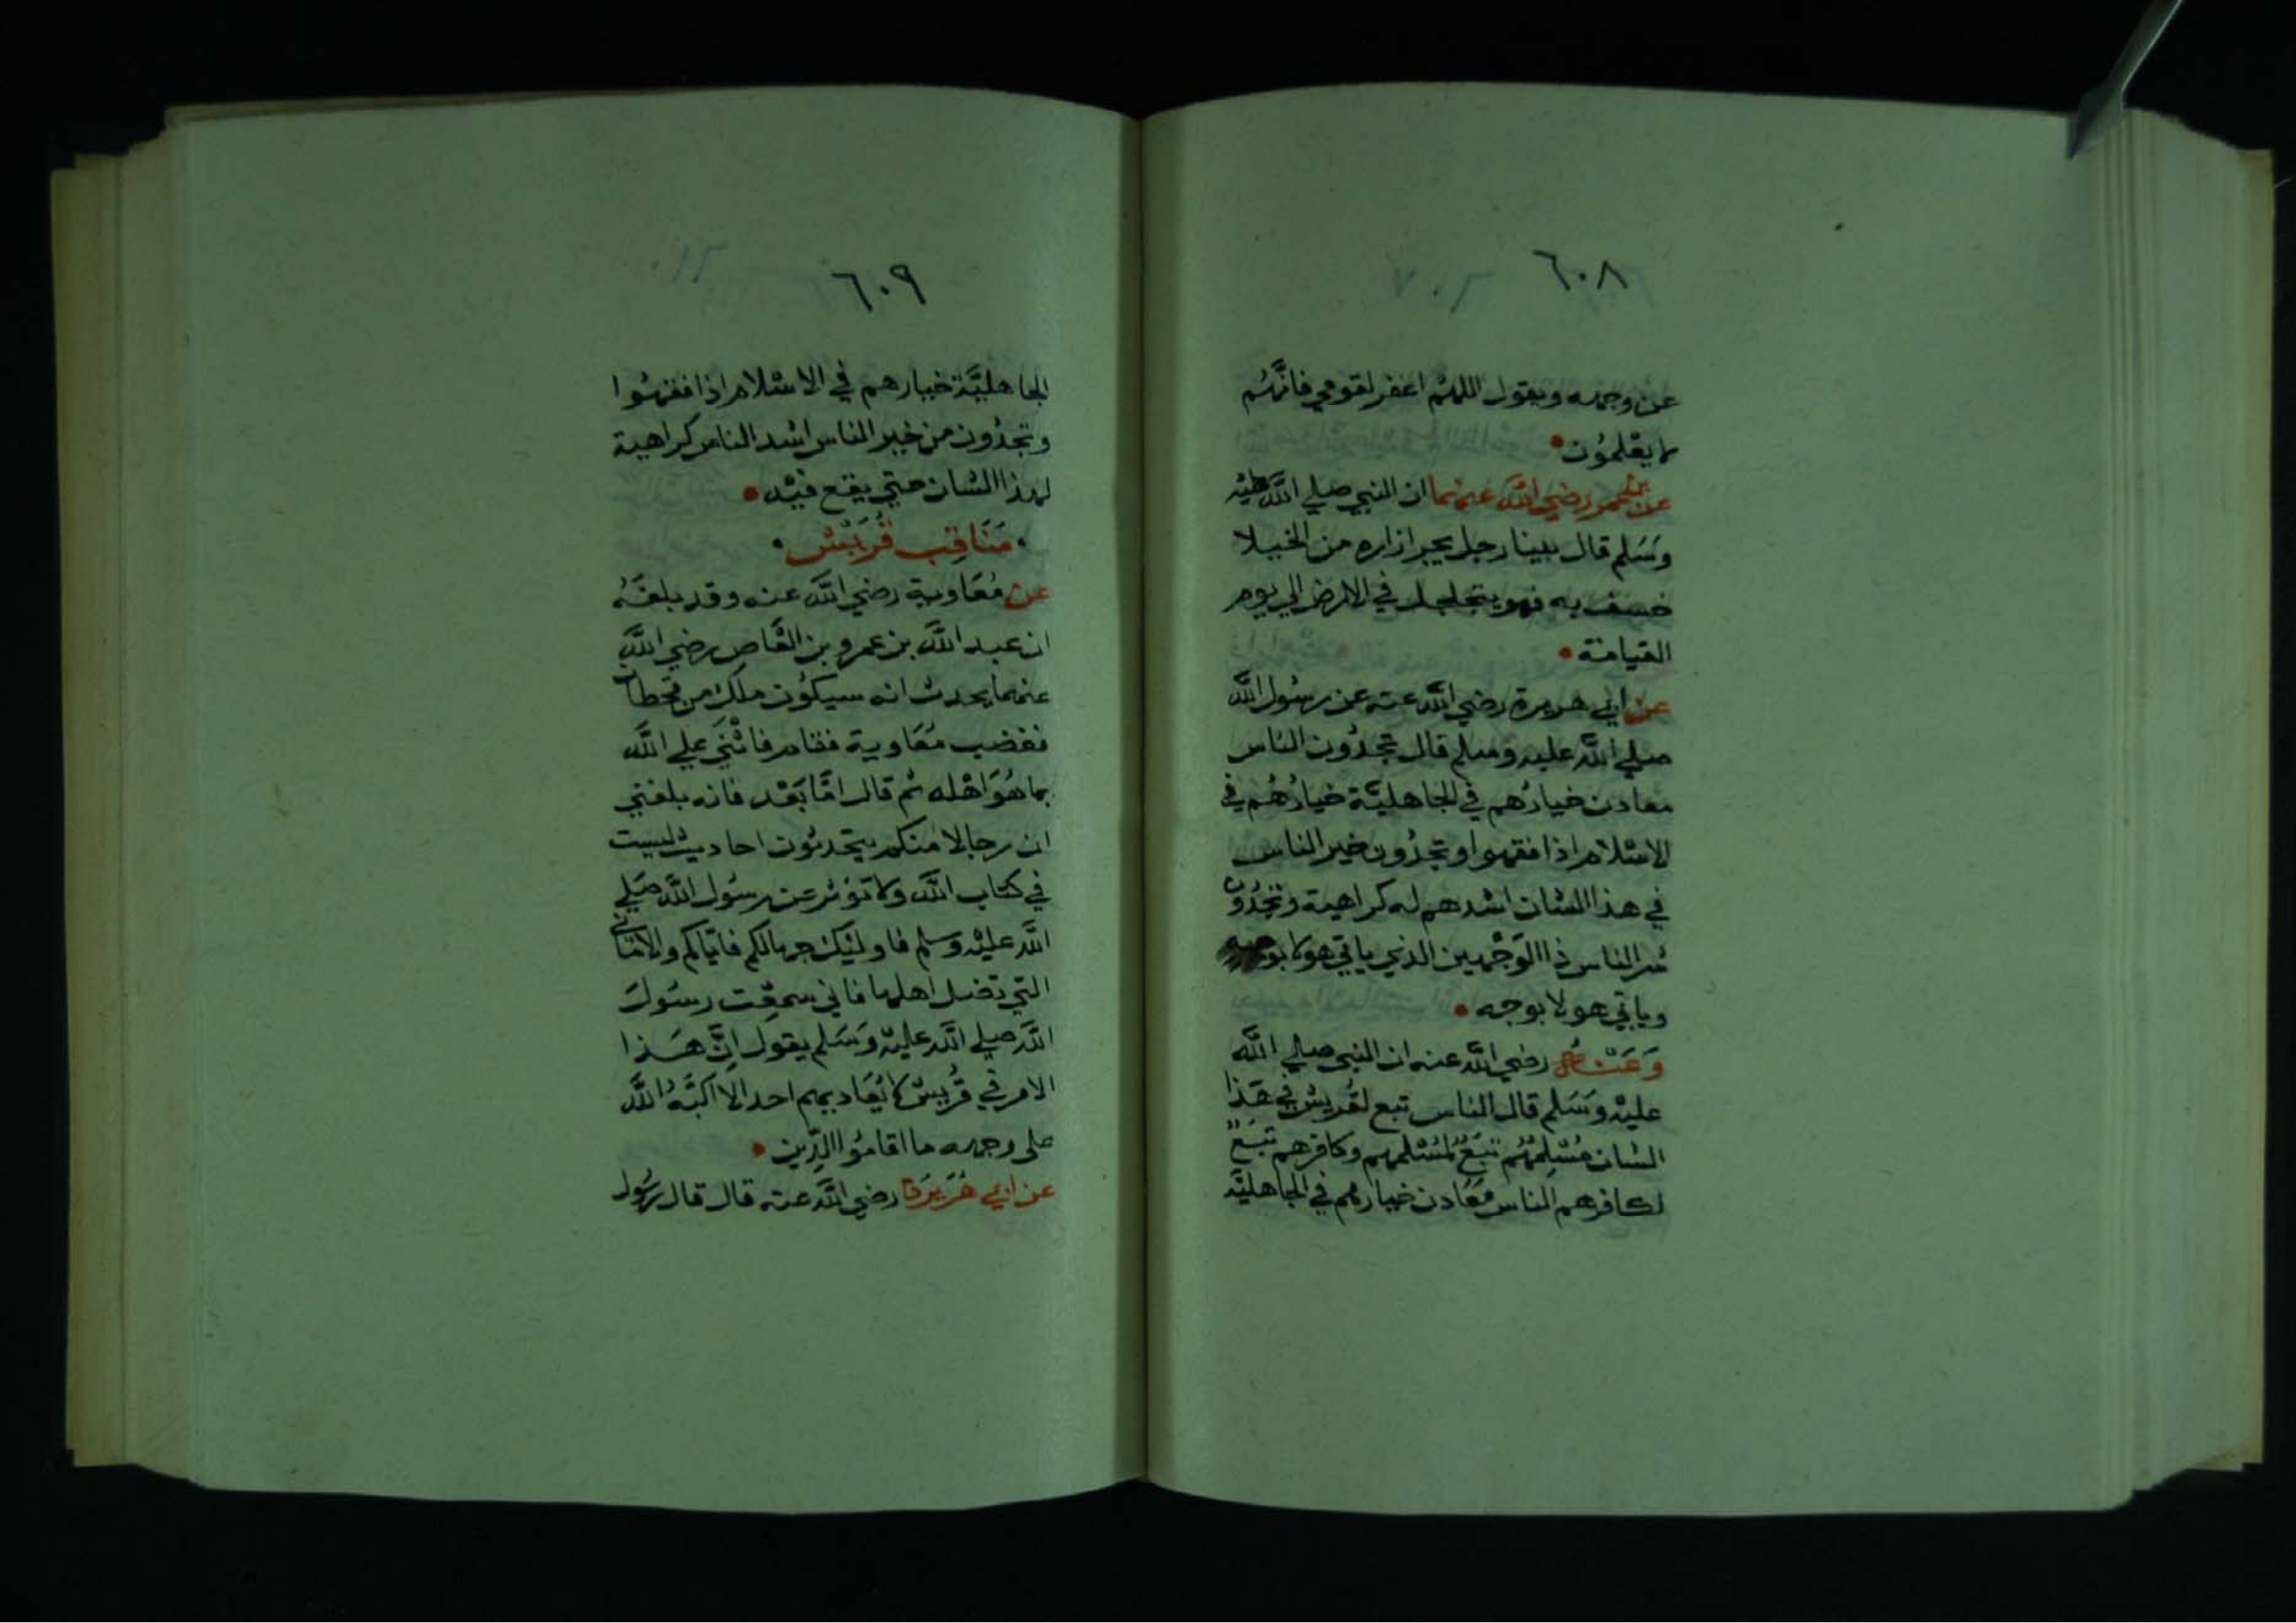 ٦٠٨
عن وجهه ويقول اللهم اغفر لقومي فانَّهُم
لا يعْلمُون
عن بن عمر رضي اللَّه عنهما ان النبي صلي اللَّه عليْه
وسَلم قال بينا رجل يجر ازاره من الخيلا
خسف به فهو يتجلجل في الارض الي يوم
القيامة
عن ابي هريرة رضي اللَّه عنه عن رسُول اللَّه
صلي اللَّه عليه وسلم قال تجدُون الناس
معادن خيارُهم في الجاهليَّة خيارُهُم في
الاسْلام اذا فقهوا وتجدُون خير الناس
في هذا الشان اشدهم له كراهية وتجدُون
شر الناس ذا الوَجْهين الذي ياتي هولا بوجه
وياتي هولا بوجه
وَعَنْهُ رضي اللَّه عنه ان النبي صلي اللَّه
عليْه وَسَلم قال الناس تبع لقُريش في هَذا
الشان مُسْلِمُهُم تبَعٌ لمُسْلمهم وكافرهم تبَعٌ
لكافرهم الناس مَعَادن خيارهم في الجاهليَّة
٦٠٩
الجاهليَّة خيارهم في الاسْلام اذا فقهُوا
وتجدُون من خير الناس اشد الناس كراهية
لهذا الشان حتي يقع فيْه
مَنَاقِب قُرَيْش
عن مُعَاوية رضي اللَّه عنه وقد بلغَهُ
ان عبد اللَّه بن عمرو بن العَاص رضي اللَّه
عنهما يحدث انه سيكوُن ملك من قحطان
فغضب مُعَاوية فقام فاثْنَي علي اللَّه
بما هُوَ اهْله ثم قال امَّا بَعْد فانه بلغني
ان رجالا منكم يتحدثوُن احاديث ليست
في كتاب اللَّه ولا تؤثر عن رسُول اللَّه صَلي
اللَّه عليْه وسلم فاوليَك جهالكم فايَّاكم والامَاني
التي تضل اهلها فاني سمعْت رسُولَ
اللَّه صلي اللَّه عليْه وَسَلم يقول اِنَّ هَذا
الامر في قُريش لا يُعَاديهم احد الا اكبَّهُ اللَّه
على وجهه ما اقامُوا الدِّين
عن ابي هُرَيْرَة رضي اللَّه عنه قال قال رسُول